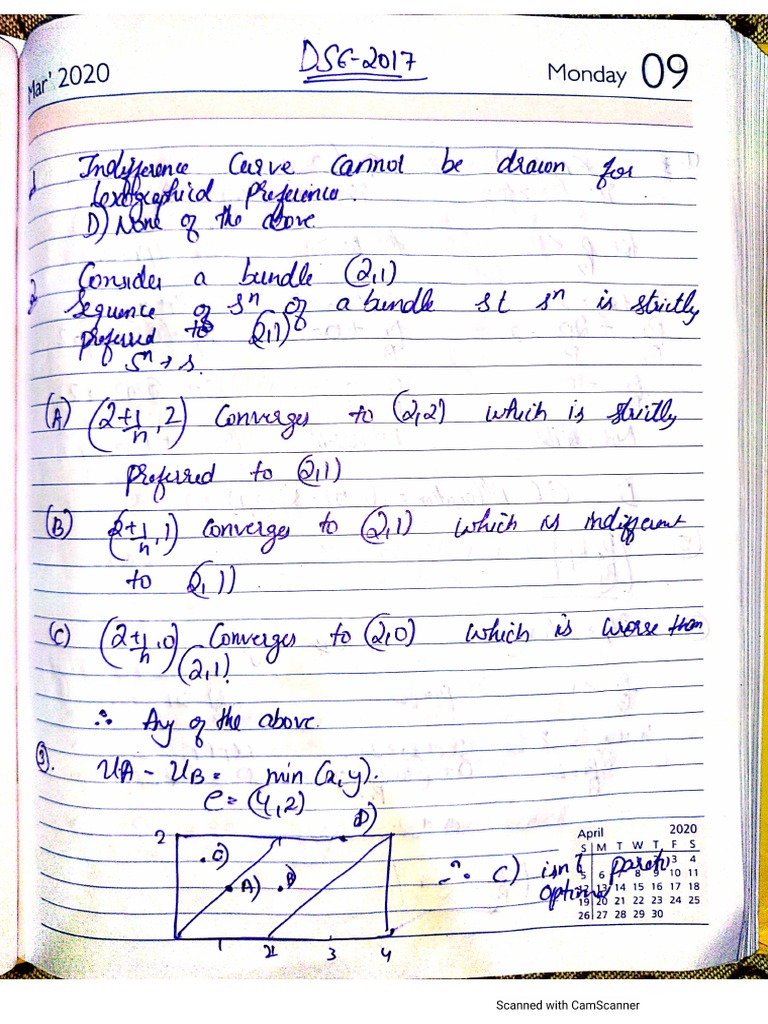 Mar' 2020
DSE-2017
Monday 09
1 Indifference Curve cannot be drawn for
Lexographical preference.
D) None of the above.
2 Consider a bundle (2,1)
Sequence of sⁿ of a bundle st sⁿ is strictly
preferred to (2,1)
Sⁿ → s.
(A) (2+1/n, 2) Converges to (2,2) which is strictly
preferred to (2,1)
(B) (2+1/n, 1) converges to (2,1) which is indifferent
to (2,1)
(C) (2+1/n, 0) Converges to (2,0) which is worse than
(2,1)
∴ Any of the above.
3. UA - UB = min (x,y).
e = (4,2)
D)
2
C)
A) B)
1 2 3 4
∴ C) isn't pareto
optimal
April 2020
S M T W T F S
3 4
5 6 8 9 10 11
12 13 14 15 16 17 18
19 20 21 22 23 24 25
26 27 28 29 30
Scanned with CamScanner